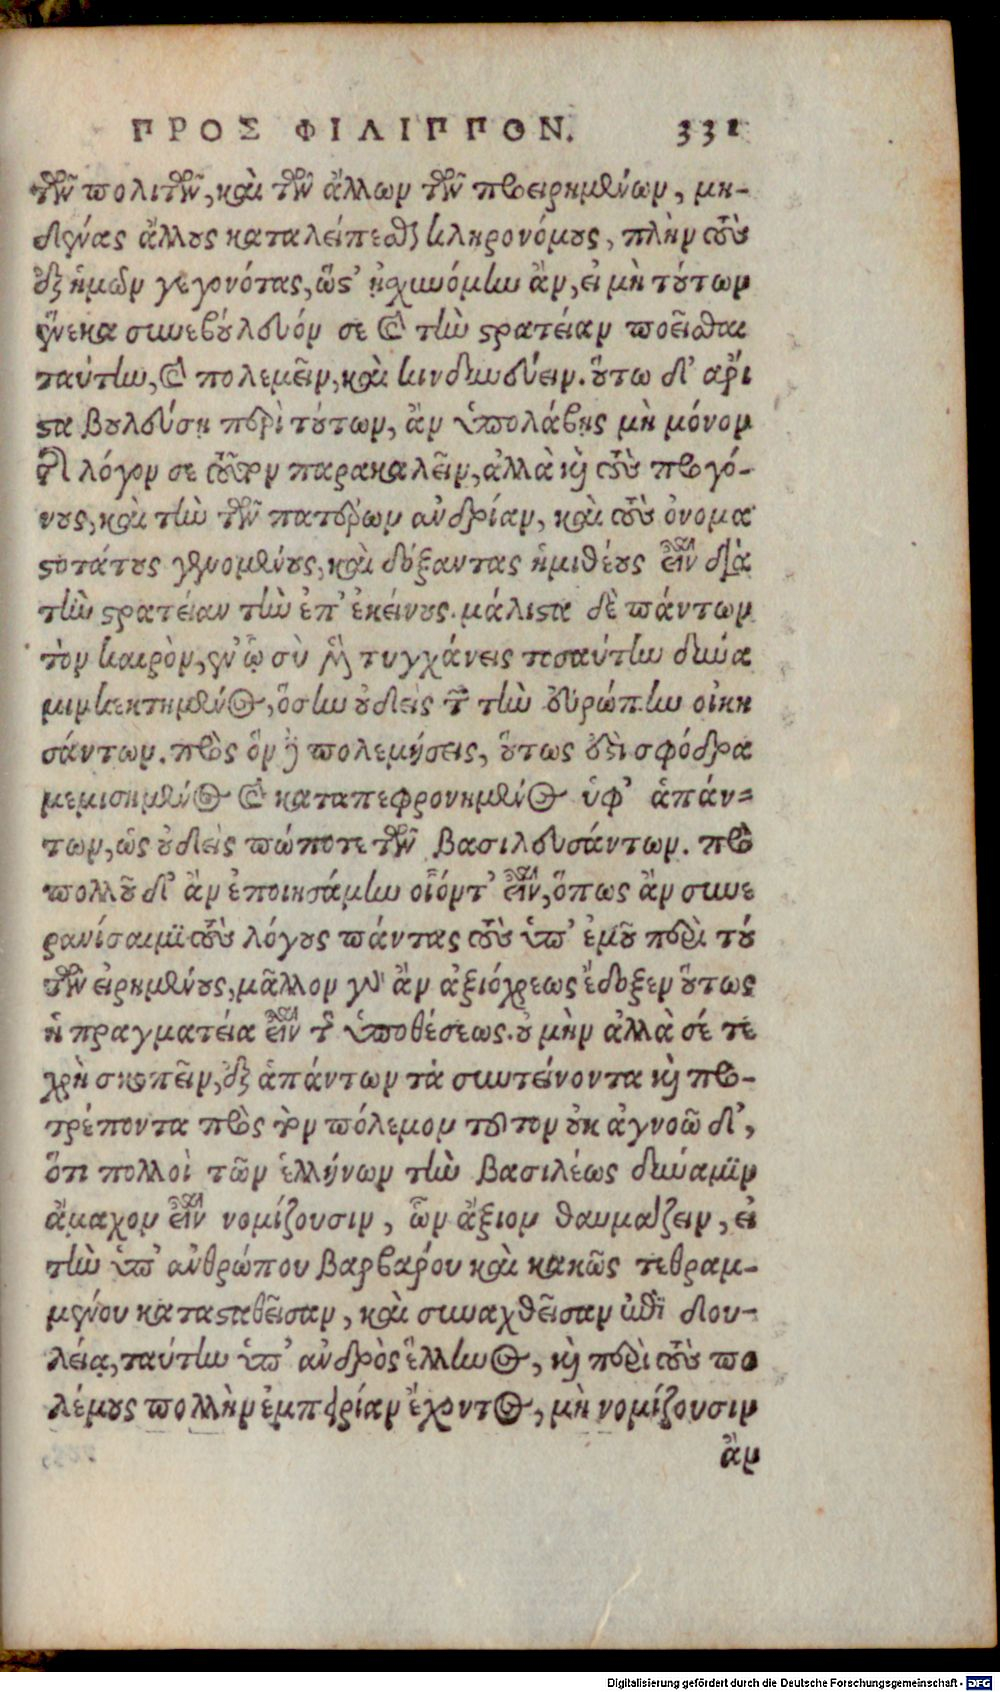 ΠΡΟΣ ΦΙΛΙΠΠΟΝ. 331
τῶν πολιτῶν, καὶ τῶν ἄλλων τῶν προειρημένων, μη-
δένας ἄλλους καταλείπεσθαι κληρονόμους, πλὴν τοὺς
ἐξ ἡμῶν γεγονότας, ὥστ' ᾐσχυνόμην ἂν, εἰ μὴ τούτων
ἕνεκα συνεβούλευόν σε καὶ τὴν στρατείαν ποιεῖσθαι
ταύτην, καὶ πολεμεῖν, καὶ κινδυνεύειν. οὕτω δ' ἄρι
στα βουλεύσῃ περὶ τούτων, ἂν ὑπολάβῃς μὴ μόνον
τὸν λόγον σε τοῦτον παρακαλεῖν, ἀλλὰ καὶ τοὺς προγό-
νους, καὶ τὴν τῶν πατέρων ἀνδρίαν, καὶ τοὺς ὀνομα
στοτάτους γενομένους, καὶ δόξαντας ἡμιθέους εἶναι διὰ
τὴν στρατείαν τὴν ἐπ' ἐκείνους. μάλιστα δὲ πάντων
τὸν καιρὸν, ἐν ᾧ σὺ μὲν τυγχάνεις τοσαύτην δύνα
μιν κεκτημένος, ὅσην οὐδεὶς τῶν τὴν εὐρώπην οἰκη
σάντων. πρὸς ὃν δὲ πολεμήσεις, οὕτως ἐστὶ σφόδρα
μεμισημένος καὶ καταπεφρονημένος ὑφ' ἁπάν-
των, ὡς οὐδεὶς πώποτε τῶν βασιλευσάντων. πρὸ
πολλοῦ δ' ἂν ἐποιησάμην οἷόντ' εἶναι, ὅπως ἂν συνε
ρανίσαιμι τοὺς λόγους πάντας τοὺς ὑπ' ἐμοῦ περὶ τού
των εἰρημένους, μᾶλλον γοῦν ἂν ἀξιόχρεως ἔδοξεν οὕτως
ἡ πραγματεία εἶναι τῆς ὑποθέσεως. οὐ μὴν ἀλλὰ σέ τε
χρὴ σκοπεῖν, ἐξ ἁπάντων τὰ συντείνοντα καὶ προ-
τρέποντα πρὸς τὸν πόλεμον τοῦτον οὐκ ἀγνοῶ δ',
ὅτι πολλοὶ τῶν ἑλλήνων τὴν βασιλέως δύναμιν
ἄμαχον εἶναι νομίζουσιν, ὧν ἄξιον θαυμάζειν, εἰ
τὴν ὑπ' ἀνθρώπου βαρβάρου καὶ κακῶς τεθραμ-
μένου κατασταθεῖσαν, καὶ συναχθεῖσαν ἐπὶ δου-
λείᾳ, ταύτην ὑπ' ἀνδρὸς ἕλληνος, καὶ περὶ τοὺς πο
λέμους πολλὴν ἐμπειρίαν ἔχοντος, μὴ νομίζουσιν
ἂν
Digitalisierung gefördert durch die Deutsche Forschungsgemeinschaft - DFG